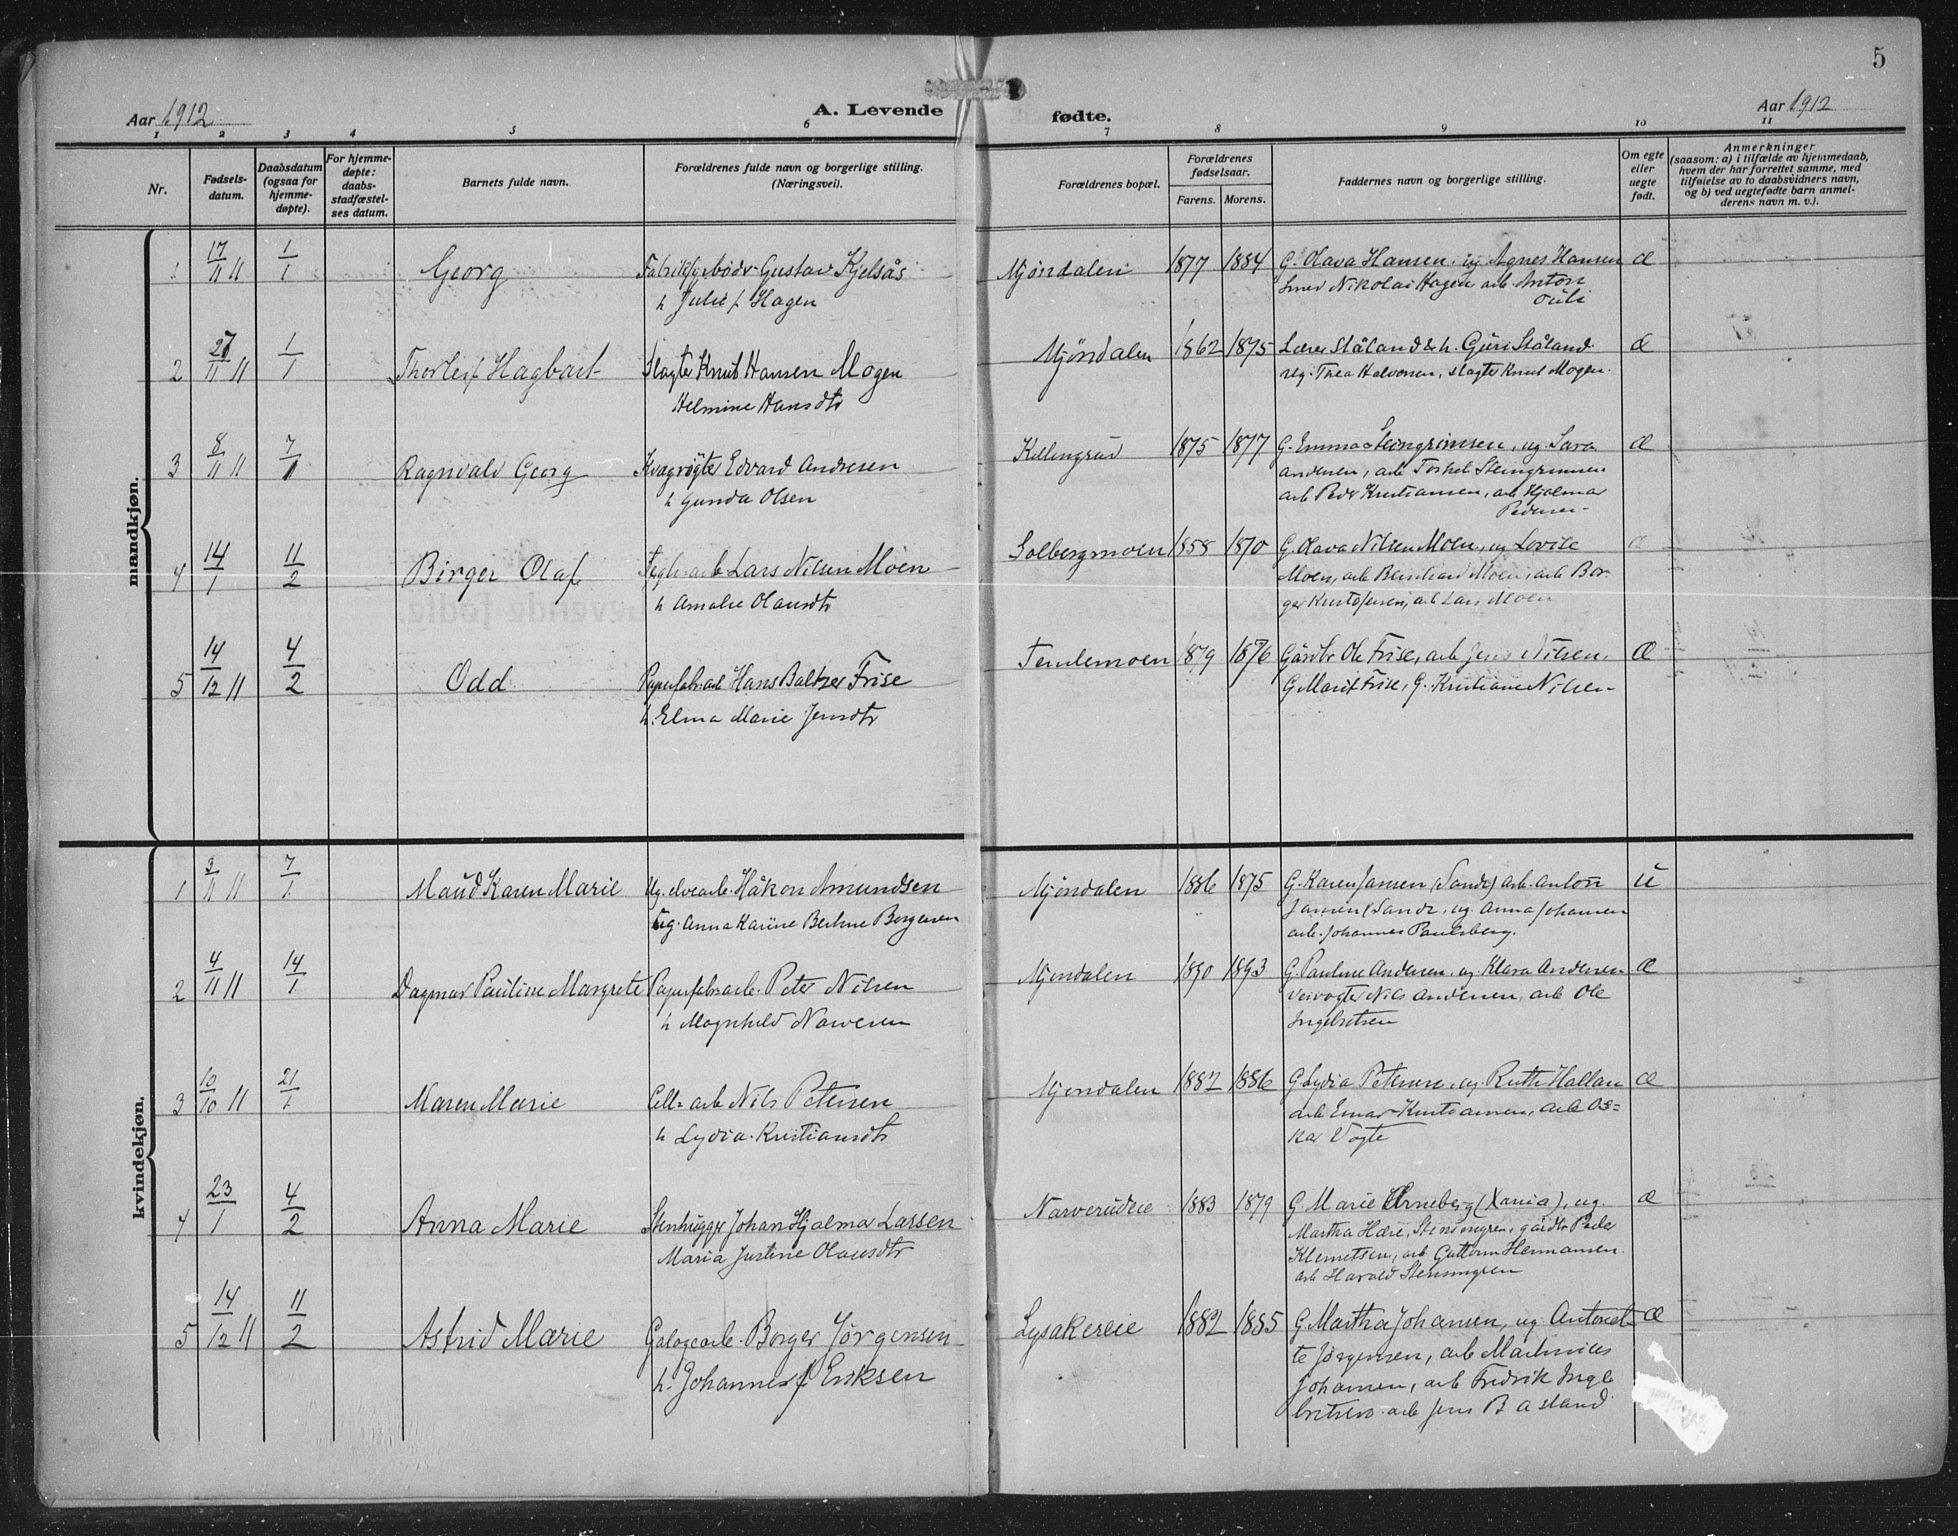 5
Aar 1912
A. Levende
fødte.
Aar 1912
1 2 3 4 5 6 7 8 9 10 11
Nr.
Fødsels-
datum.
Daabsdatum
(ogsaa for
hjemme-
døpte).
For hjemme-
døpte:
daabs-
stadfæstel-
ses datum.
Barnets fulde navn.
Forældrenes fulde navn og borgerlige stilling.
(Næringsvei).
Forældrenes bopæl.
Forældrenes
fødselsaar.
Farens. Morens.
Faddernes navn og borgerlige stilling.
Om egte
eller
uegte
født.
Anmerkninger
(saasom: a) i tilfælde av hjemmedaab,
hvem der har forrettet samme, med
tilføielse av to daabsvidners navn,
og b) ved uegtefødte barn anmel-
derens navn m. v.).
mandkjøn.
1 17/11 11 1/1 Georg Gustav Kjelsås Mjøndalen 1877 1884 G. Olava Hansen, ug Agnes Hansen æ
h Julie f. Hagen Nikolai Hagen, arb. Anton
2 27/11 11 1/1 Thorleif Hagbart Slagter Knut Hansen Mogen Mjøndalen 1862 1875 Lærer Ståland & h. Guri Ståland æ
Helmine Hansdtr Thea Halvorsen, slagter Knut Mogen.
3 8/11 11 7/1 Ragnvald Georg Edvard Andresen Killingrud 1875 1877 G. Emma Steingrimsen, ug Sara æ
h Gunda Olsen andersen, arb Torkel Steingrimsen
arb Peder Kristiansen, arb Hjalmar
Pedersen
4 14/1 11/2 Birger Olaf Teglv.arb Lars Nilsen Moen Solbergmoen 1858 1870 G. Olava Nilsen Moen, ug Lovise
h Amalie Olausdtr Moen, arb Bernhard Moen, arb Bor-
ger Kristofersen, arb Lars Moen
5 14/12 11 4/2 Odd Papirfabr.arb Hans Baltzer Frise Temlemoen 1879 1876 Gårdbr Ole Frise, arb Jens Nilsen, æ
h. Elma Marie Jensdtr G Marit Frise, G. Kristiane Nilsen
kvindekjøn.
1 3/11 11 7/1 Maud Karen Marie Ug. Håkon Amundsen Mjøndalen 1886 1875 G. Karen Jansen (Sande) arb. Anton u
ug. Anna Karine Berthine Borgersen Jansen (Sande, ug. Anna Johansen
arb. Johannes Paulsberg.
2 4/11 11 14/1 Dagmar Pauline Margrete Papirfabr.arb. Peter Nilsen Mjøndalen 1890 1893 G. Pauline Andersen, ug. Klara Andersen æ
h Magnhild Narvesen Veivogter Nils Andersen, arb Ole
Ingebretsen
3 10/10 11 21/1 Maren Marie Cell. arb Nils Petersen Mjøndalen 1882 1886 G Lydia Petersen, ug. Ruth Hallan æ
h Lydia Kristiansdtr arb Einar Kristiansen, arb Os=
kar Vogte
4 23/1 4/2 Anna Marie Stenhugger Johan Hjalmar Larsen Narverudeie 1883 1879 G. Marie Arneberg (Xania), ug æ
Maria Justine Olausdtr Martha Hære, Stensengren, gårdbr Peder
Klemetsen, arb Guttorm Hermansen.
arb Harald Stensengren
5 14/12 11 11/2 Astrid Marie Galogearb. Borger Jørgensen Lysakereie 1882 1885 G Martha Johansen, ug Antonet- æ
h. Johanne f Eriksen te Jørgensen, arb Martinius
Johansen, arb Fredrik Inge
bretsen arb Jens Båstand